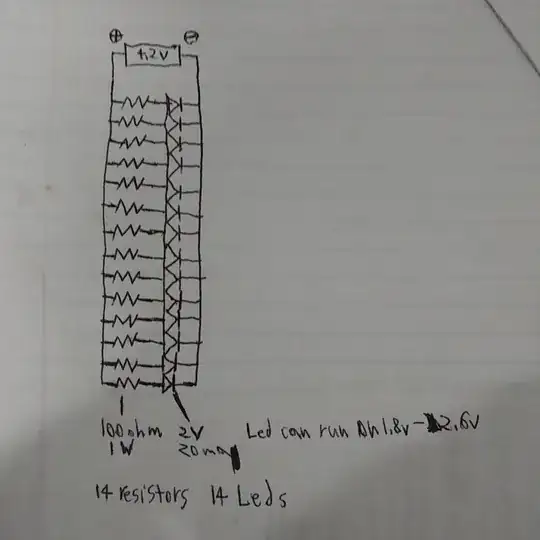 ⊕ ⊖
4.2V
100ohm 2V Led can run on 1.8v-2.6v
1W 20ma
14 resistors 14 Leds